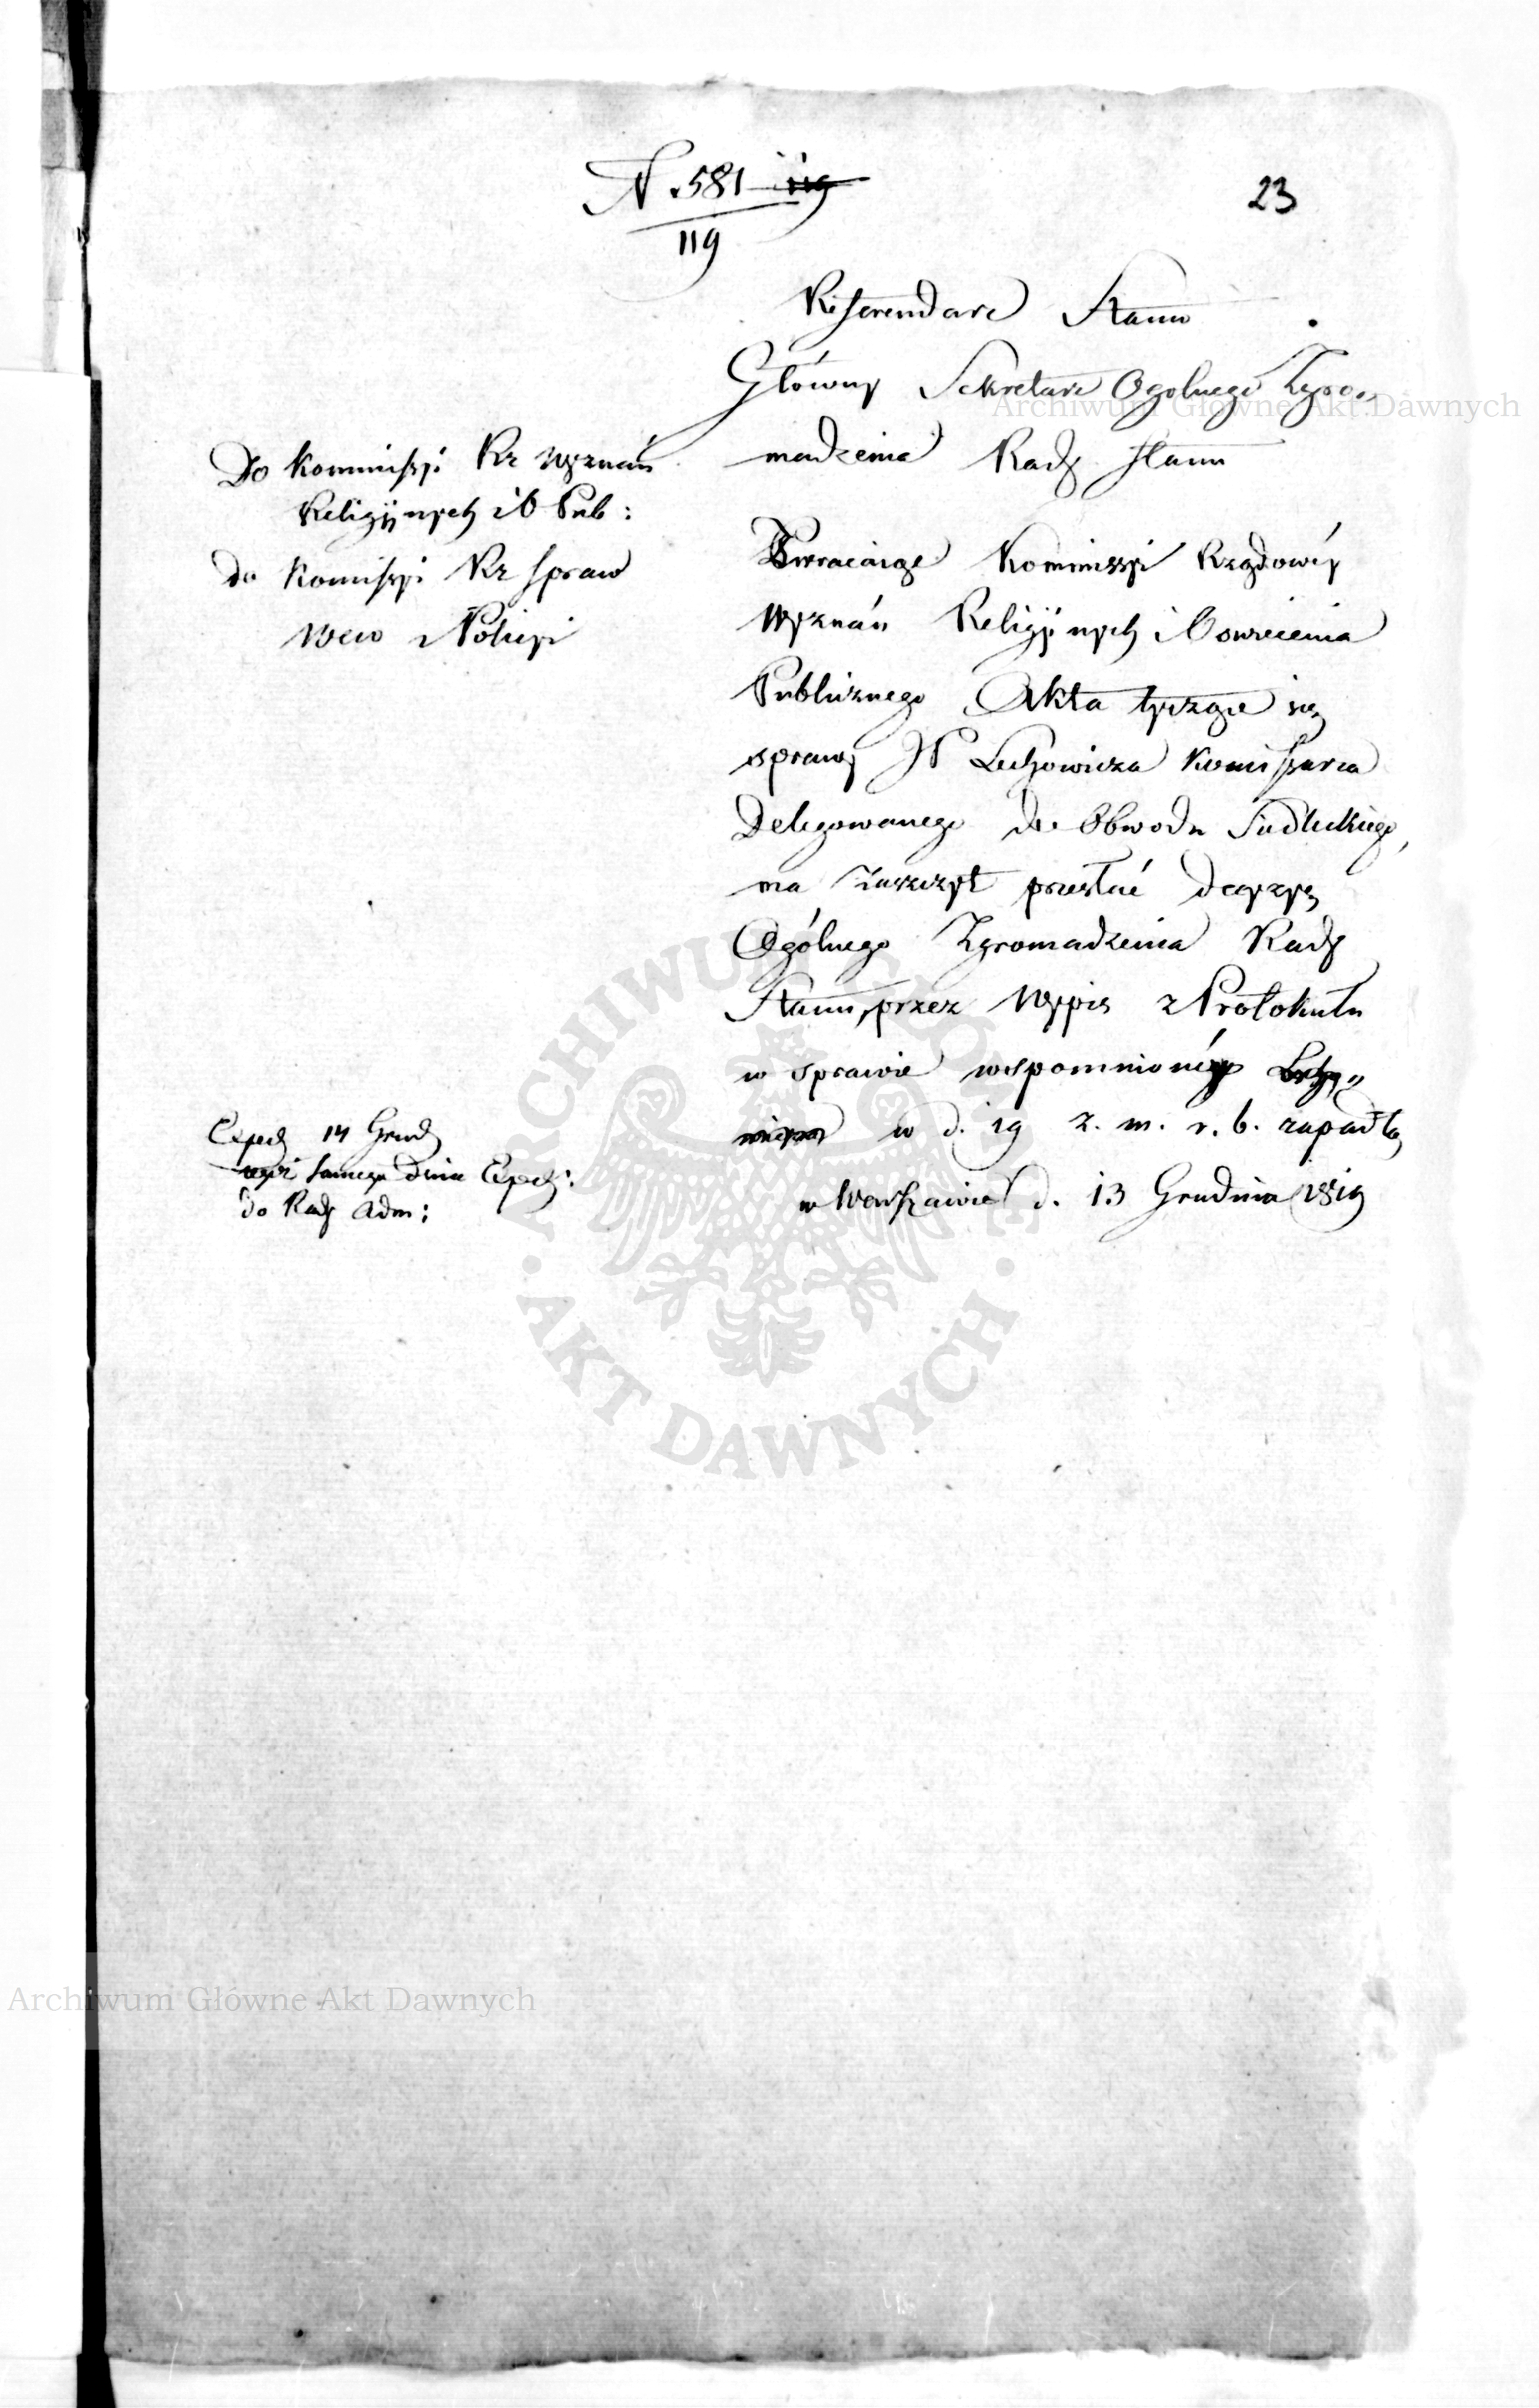 N. 581
119
23
Referendarz Stanu
Główny Sekretarz Ogolnego Zgro„
madzenia Rady Stanu
Do Kommissyi Rz Wyznań
Religijnych i O Pub:
do Komissyi Rz Spraw
Wew i Policyi
Zwracaiąc Kommissyi Rządowéy
Wyznań Religijnych i Oswiecenia
Publicznego Akta tyczące się
sprawy W Lechowicza Komissarza
Delegowanego do Obwodu Siedleckiego,
ma zaszczyt przesłać decyzyę
Ogólnego Zgromadzenia Rady
Stanu, przez Wypis z Protokułu
w sprawie wspomnionéy
w d. 19 z. m. r. b. zapadłą
w Warszawie d. 13 Grudnia 1819
Exped 14 Grud
tegoż samego dnia Exped:
do Rady Adm:
Archiwum Główne Akt Dawnych
ARCHIWUM GŁÓWNE
AKT DAWNYCH
Archiwum Główne Akt Dawnych